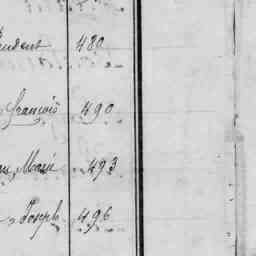 480
françois 490
Marie 493
Joseph 496